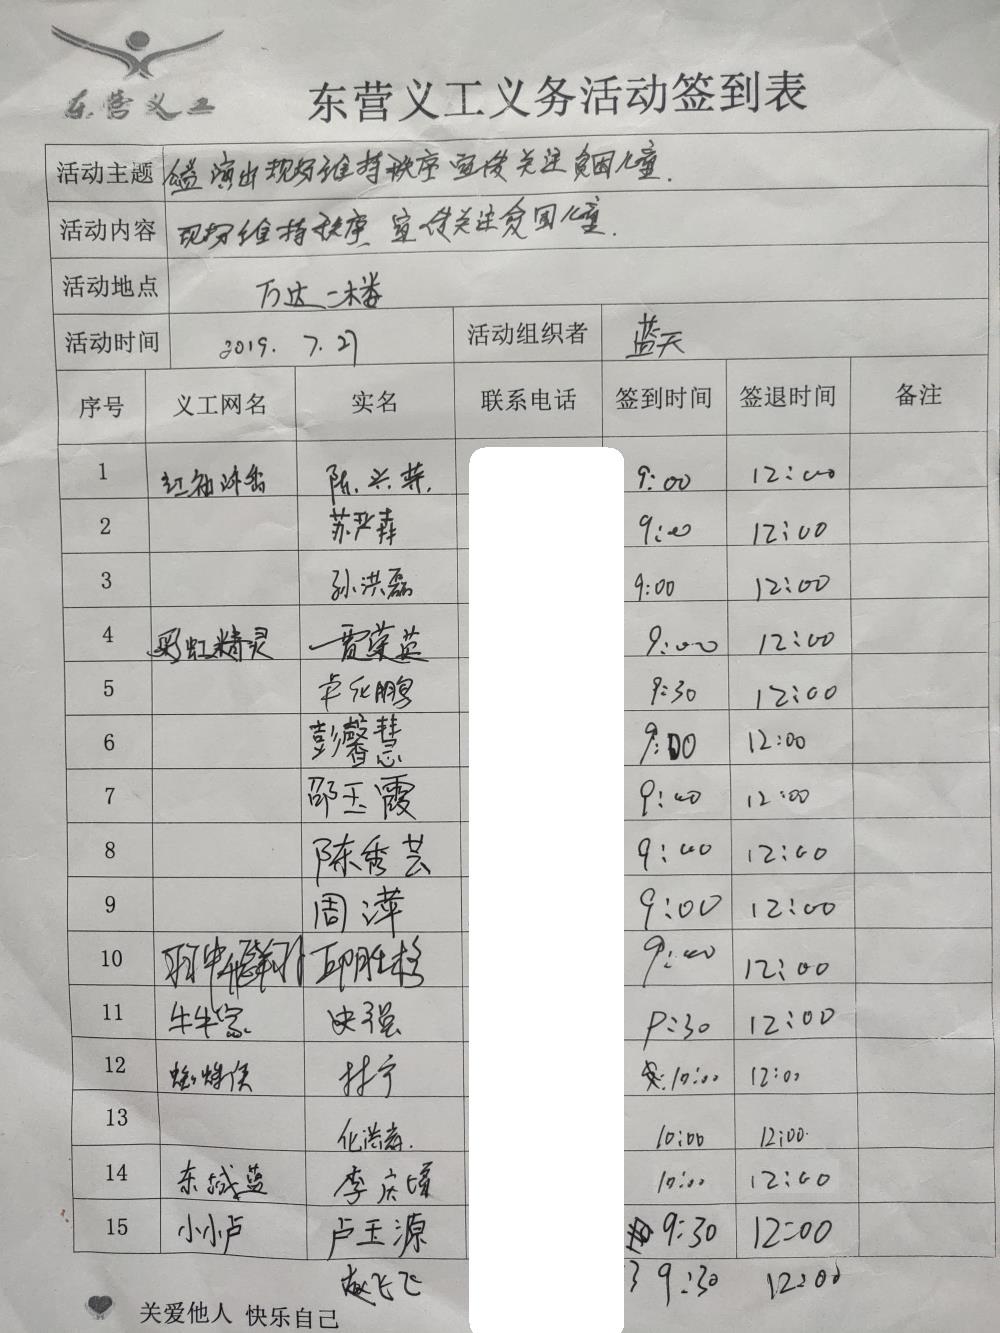 东营义工
东营义工义务活动签到表
活动主题 演出现场维持秩序 宣传关注贫困儿童.
活动内容 现场维持秩序 宣传关注贫困儿童.
活动地点 万达一楼
活动时间 2019. 7. 27 活动组织者 蓝天
序号 义工网名 实名 联系电话 签到时间 签退时间 备注
1 陈兴 9:00 12:00
2 苏 9:00 12:00
3 孙洪磊 9:00 12:00
4 彩虹精灵 贾荣英 9:00 12:00
5 鹏 9:30 12:00
6 彭馨慧 9:00 12:00
7 邵玉霞 9:00 12:00
8 陈秀芸 9:00 12:00
9 周萍 9:00 12:00
10 9:00 12:00
11 牛牛 强 9:30 12:00
12 林宁 10:00 12:00
13 10:00 12:00
14 东城蓝 李庆 10:00 12:00
15 小小卢 卢玉源 9:30 12:00
赵飞飞 3 9:30 12:00
关爱他人 快乐自己